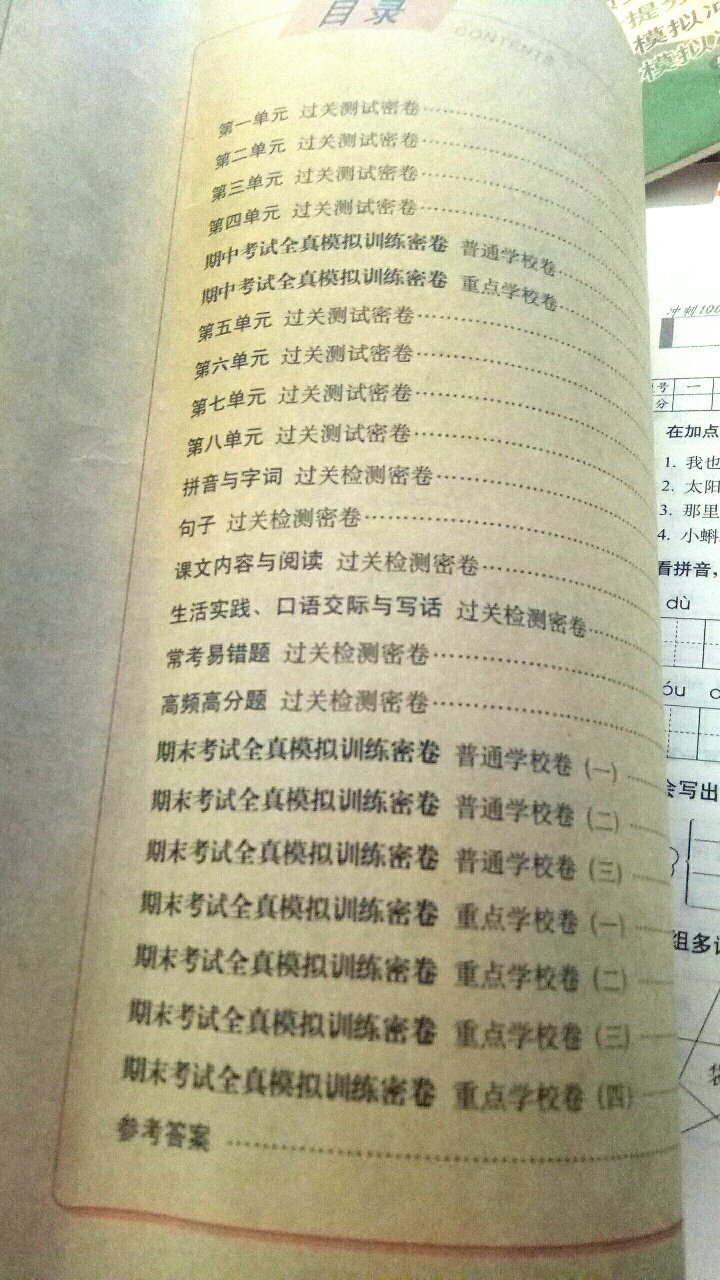 目录
CONTENTS
第一单元 过关测试密卷
第二单元 过关测试密卷
第三单元 过关测试密卷
第四单元 过关测试密卷
期中考试全真模拟训练密卷 普通学校卷
期中考试全真模拟训练密卷 重点学校卷
第五单元 过关测试密卷
第六单元 过关测试密卷
第七单元 过关测试密卷
第八单元 过关测试密卷
拼音与字词 过关检测密卷
句子 过关检测密卷
课文内容与阅读 过关检测密卷
生活实践、口语交际与写话 过关检测密卷
常考易错题 过关检测密卷
高频高分题 过关检测密卷
期末考试全真模拟训练密卷 普通学校卷(一)
期末考试全真模拟训练密卷 普通学校卷(二)
期末考试全真模拟训练密卷 普通学校卷(三)
期末考试全真模拟训练密卷 重点学校卷(一)
期末考试全真模拟训练密卷 重点学校卷(二)
期末考试全真模拟训练密卷 重点学校卷(三)
期末考试全真模拟训练密卷 重点学校卷(四)
参考答案
模拟冲
模拟
冲刺100
号 一
分
在加点
1. 我也
2. 太阳
3. 那里
4. 小蝌
看拼音，
dù
óu
会写出
组多